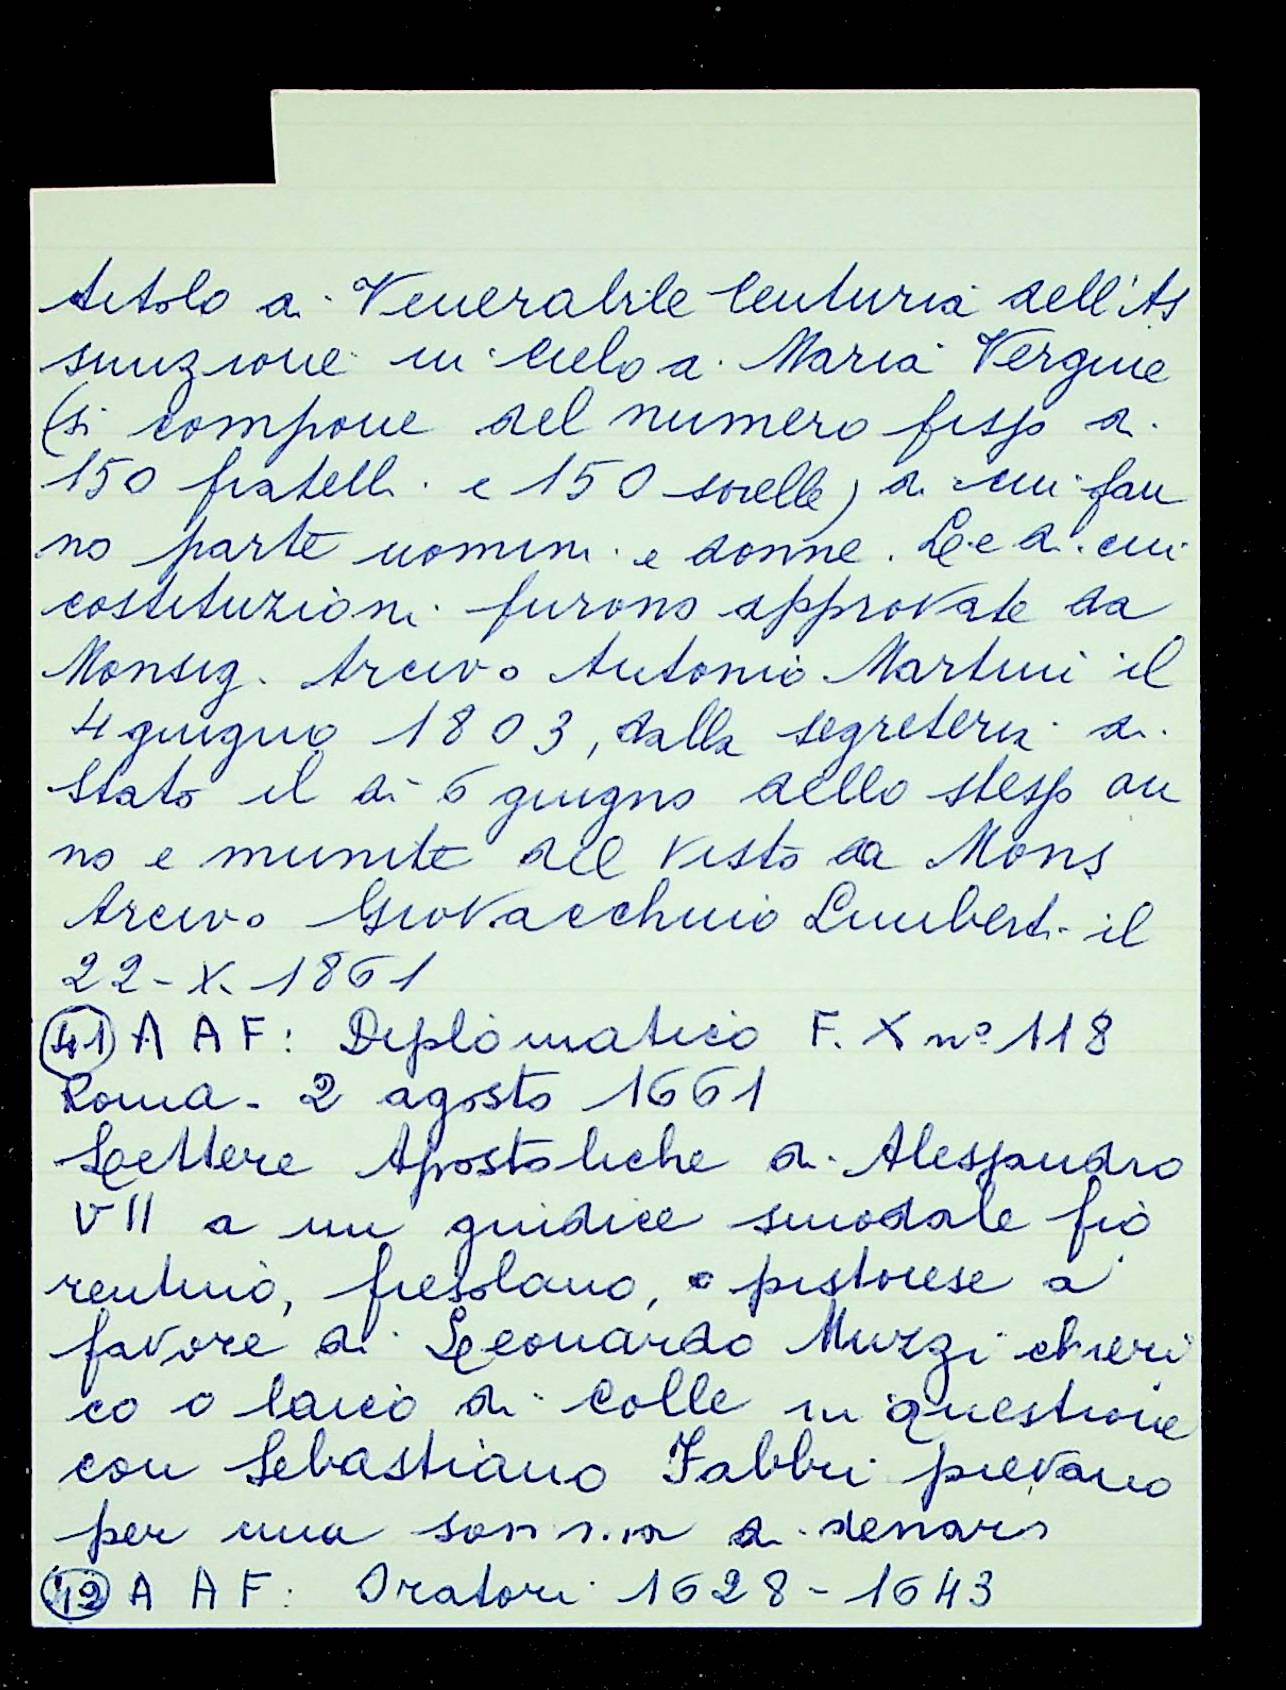 titolo di Venerabile Centuria dell'As
sunzione in cielo di Maria Vergine
(si compone del numero fisso di
150 fratelli e 150 sorelle) di cui fan
no parte uomini e donne. Le di cui
costituzioni furono approvate da
Monsig. Arciv.o Antonio Martini il
4 giugno 1803, dalla segreteria di
Stato il dì 6 giugno dello stesso an
no e munite del visto da Mons
Arciv.o Giovacchino Limberti il
22-X-1861
(41) A A F: Diplomatico F. X n° 118
Roma - 2 agosto 1661
Lettere Apostoliche di Alessandro
VII a un giudice sinodale fio
rentino, fiesolano, o pistoiese a
favore di Leonardo Muzzi chieri
co o laico di Colle in questione
con Sebastiano Fabbri pievano
per una somma di denaro
(42) A A F: Oratori 1628-1643